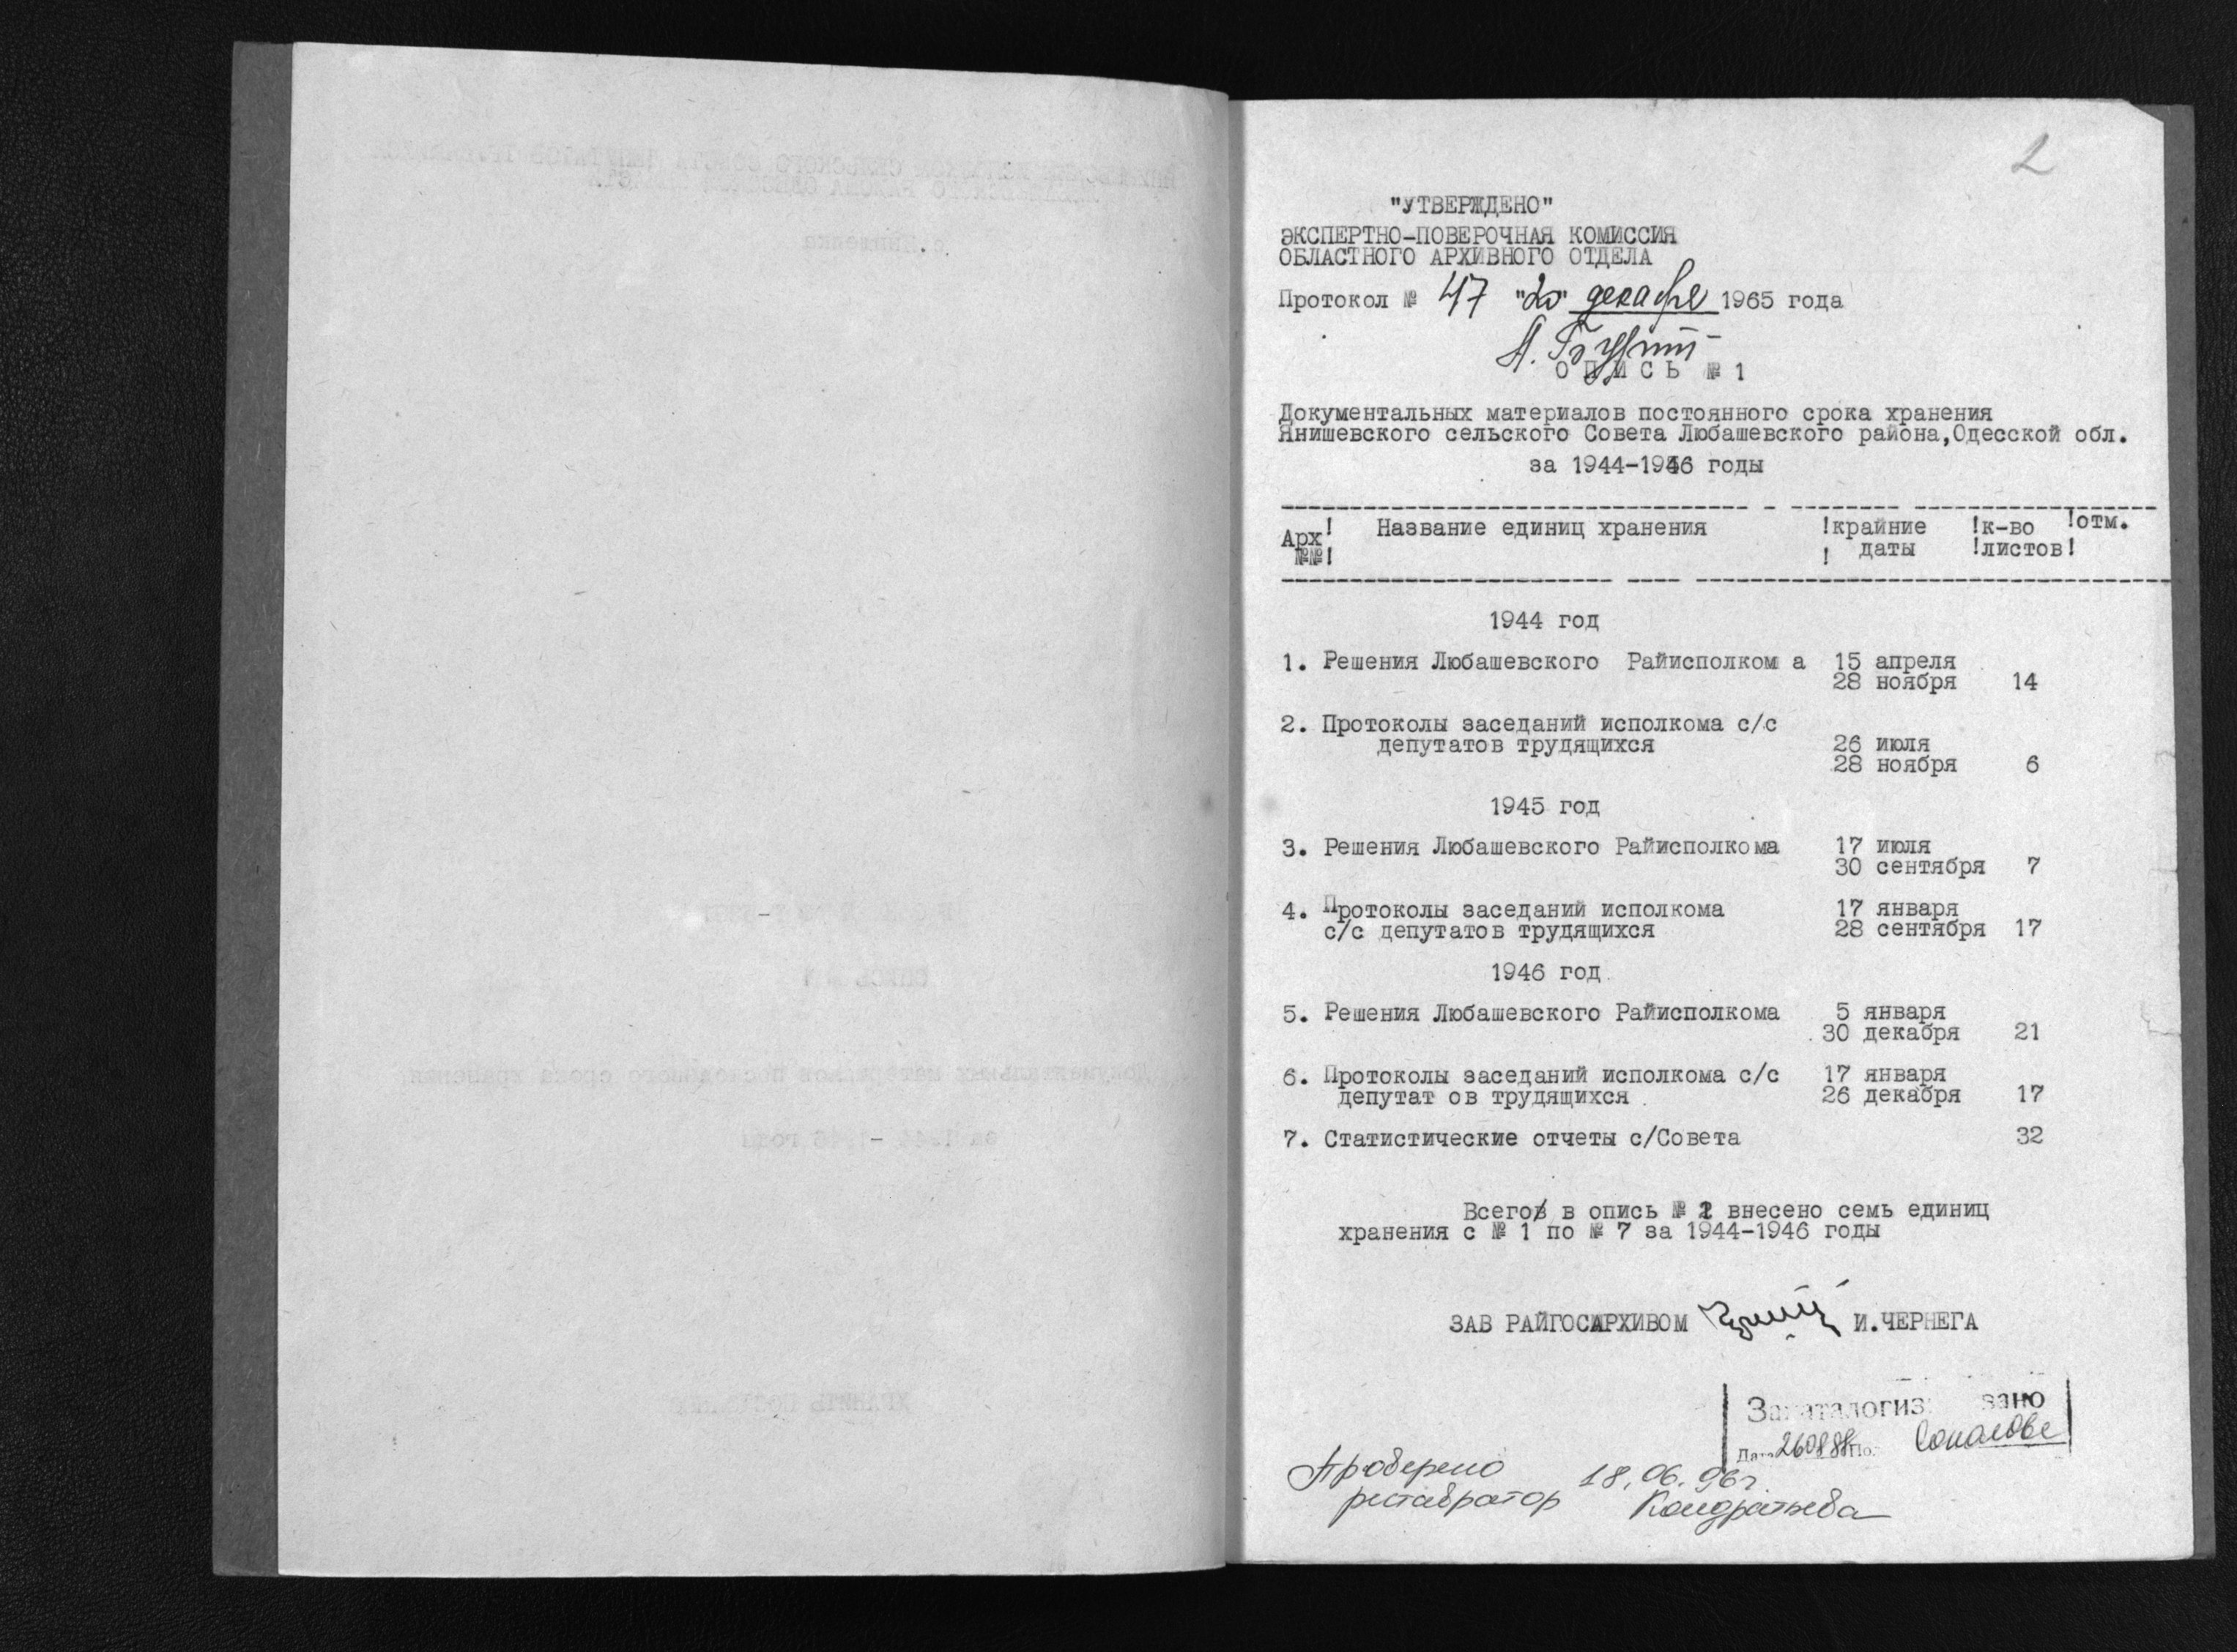 2
"УТВЕРЖДЕНО"
ЭКСПЕРТНО-ПОВЕРОЧНАЯ КОМИССИЯ
ОБЛАСТНОГО АРХИВНОГО ОТДЕЛА
Протокол № 47 "20" декабря 1965 года
ОПИСЬ № 1
Документальных материалов постоянного срока хранения
Янишевского сельского Совета Любашевского района,Одесской обл.
за 1944-1946 годы
Арх №№ ! Название единиц хранения ! крайние даты ! к-во листов ! отм.
1944 год
1. Решения Любашевского Райисполком а 15 апреля
28 ноября 14
2. Протоколы заседаний исполкома с/с
депутатов трудящихся 26 июля
28 ноября 6
1945 год
3. Решения Любашевского Райисполкома 17 июля
30 сентября 7
4. Протоколы заседаний исполкома 17 января
с/с депутатов трудящихся 28 сентября 17
1946 год
5. Решения Любашевского Райисполкома 5 января
30 декабря 21
6. Протоколы заседаний исполкома с/с 17 января
депутат ов трудящихся 26 декабря 17
7. Статистические отчеты с/Совета 32
Всего в опись № 1 внесено семь единиц
хранения с № 1 по № 7 за 1944-1946 годы
ЗАВ РАЙГОСАРХИВОМ И.ЧЕРНЕГА
Закаталогизировано
Дата 260888 По
Проверено 18.06.96г.
реставратор Кондратьева